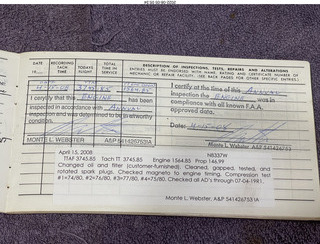 DATE
19
RECORDING
TACH
TIME
TODAYS
FLIGHT
TOTAL
TIME IN
SERVICE
DESCRIPTION OF INSPECTIONS, TESTS, REPAIRS AND ALTERATIONS
ENTRIES MUST BE ENDORSED WITH NAME, RATING AND CERTIFICATE NUMBER OF
MECHANIC OR REPAIR FACILITY. (SEE BACK PAGES FOR OTHER SPECIFIC ENTRIES.)
3745.85
1564.85
I certify that this ENGINE has been
inspected in accordance with ANNUAL
inspection and was determined to be in airworthy
condition.
MONTE L. WEBSTER A&P 541426753IA
I certify at the time of this ANNUAL
inspection the ENGINE was in
compliance with all known F.A.A.
approved data.
Date:
MONTE L. WEBSTER A&P 541426753
April 15, 2008 N8337W
TTAF 3745.85 Tach TT 3745.85 Engine 1564.85 Prop 146.99
Changed oil and filter (customer-furnished). Cleaned, gapped, tested, and
rotated spark plugs. Checked magneto to engine timing. Compression test
#1=74/80, #2=76/80, #3=77/80, #4=75/80. Checked all AD's through 07-04-1981.
Monte L. Webster, A&P 541426753 IA